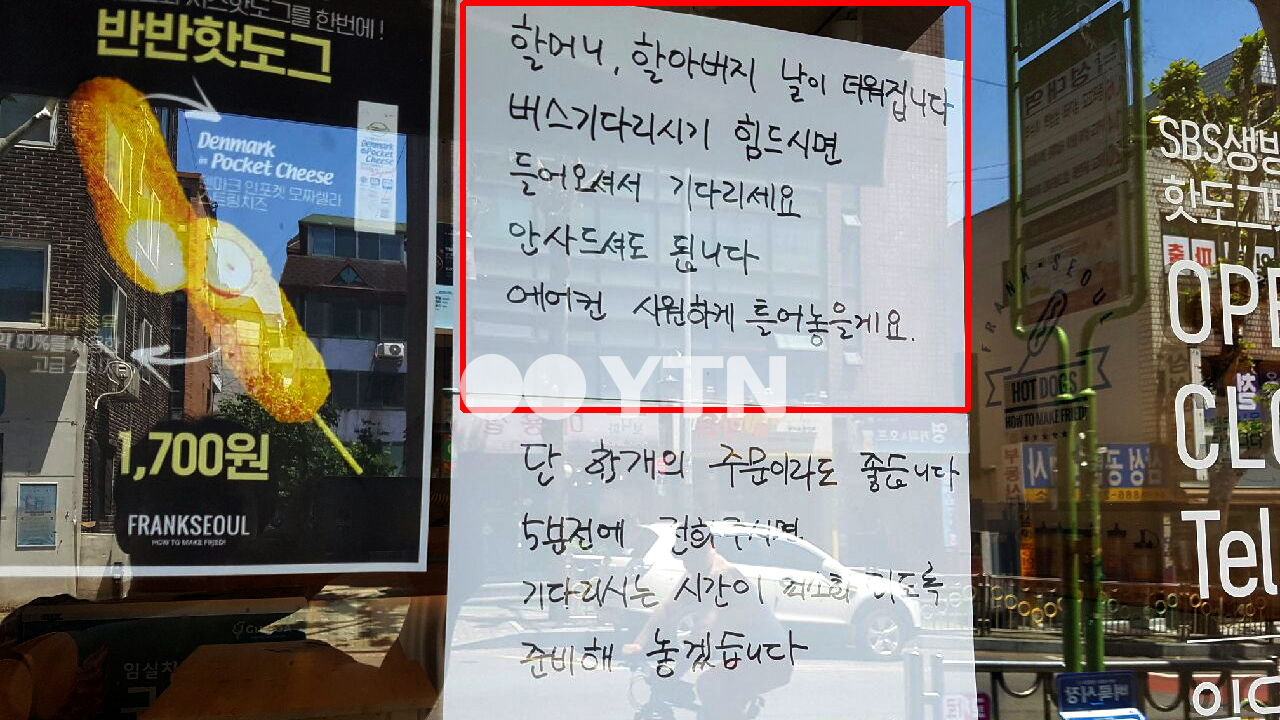 치즈핫도그를 한번에!
반반핫도그
Denmark
in Pocket Cheese
덴마크 인포켓 모짜렐라
스트링치즈
Denmark
in Pocket
Cheese
1,700원
FRANKSEOUL
HOW TO MAKE FRIED!
할머니, 할아버지 날이 더워집니다
버스기다리시기 힘드시면
들어오셔서 기다리세요
안사드셔도 됩니다
에어컨 시원하게 틀어놓을게요.
YTN
단 한개의 주문이라도 좋습니다
5분전에 전화주시면
기다리시는 시간이 최소화 되도록
준비해 놓겠습니다
FRANK SEOUL
HOT DOGS
HOW TO MAKE FRIED!
SBS생방
핫도그
OPE
CLO
Tel